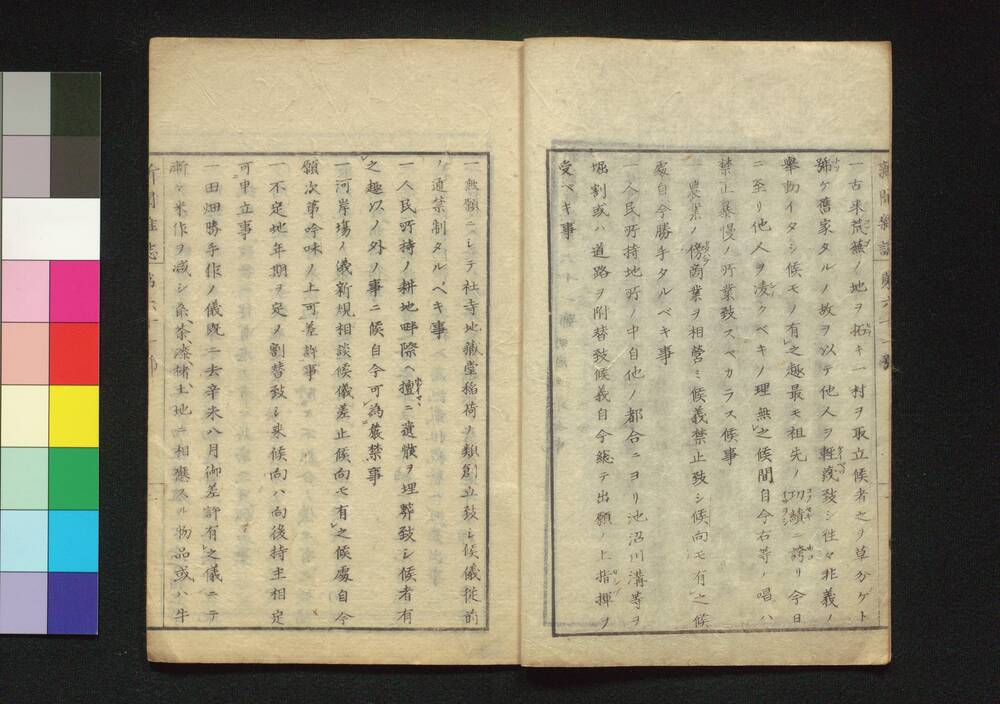 新聞雑誌 第六十一號
一古来荒蕪ノ地ヲ拓キ一村ヲ取立候者之ヲ草分ゲト
號ケ舊家タルノ故ヲ以テ他人ヲ輕蔑致シ往々非義ノ
舉動イタシ候モノ有之趣最モ祖先ノ功績ニ誇リ今日
ニ至リ他人ヲ凌クベキノ理無之候間自今右等ノ唱ハ
禁止暴慢ノ所業致スベカラス候事
一農業ノ傍商業ヲ相營ミ候義禁止致シ候向モ有之候
處自今勝手タルベキ事
一人民所持地所ノ中自他ノ都合ニヨリ池沼川溝等ヲ
堀割或ハ道路ヲ附替致候義自今総テ出願ノ上指揮ヲ
受ベキ事
一無願ニシテ社寺地蔵堂稲荷ノ類創立致シ候儀従前
ノ通禁制タルベキ事
一人民所持ノ耕地畔際ヘ擅ニ遺骸ヲ埋葬致シ候者有
之趣以ノ外ノ事ニ候自今可為嚴禁事
一河岸塲ノ儀新規相談候儀差止候向モ有之候處自今
願次第吟味ノ上可差許事
一不定地年期ヲ定メ割替致シ来候向ハ向後持主相定
可申立事
一田畑勝手作ノ儀既ニ去辛未八月御差許有之儀ニテ
漸々米作ヲ減シ桑茶漆楮土地ニ相應スル物品或ハ牛
新聞雑誌 第六十一號